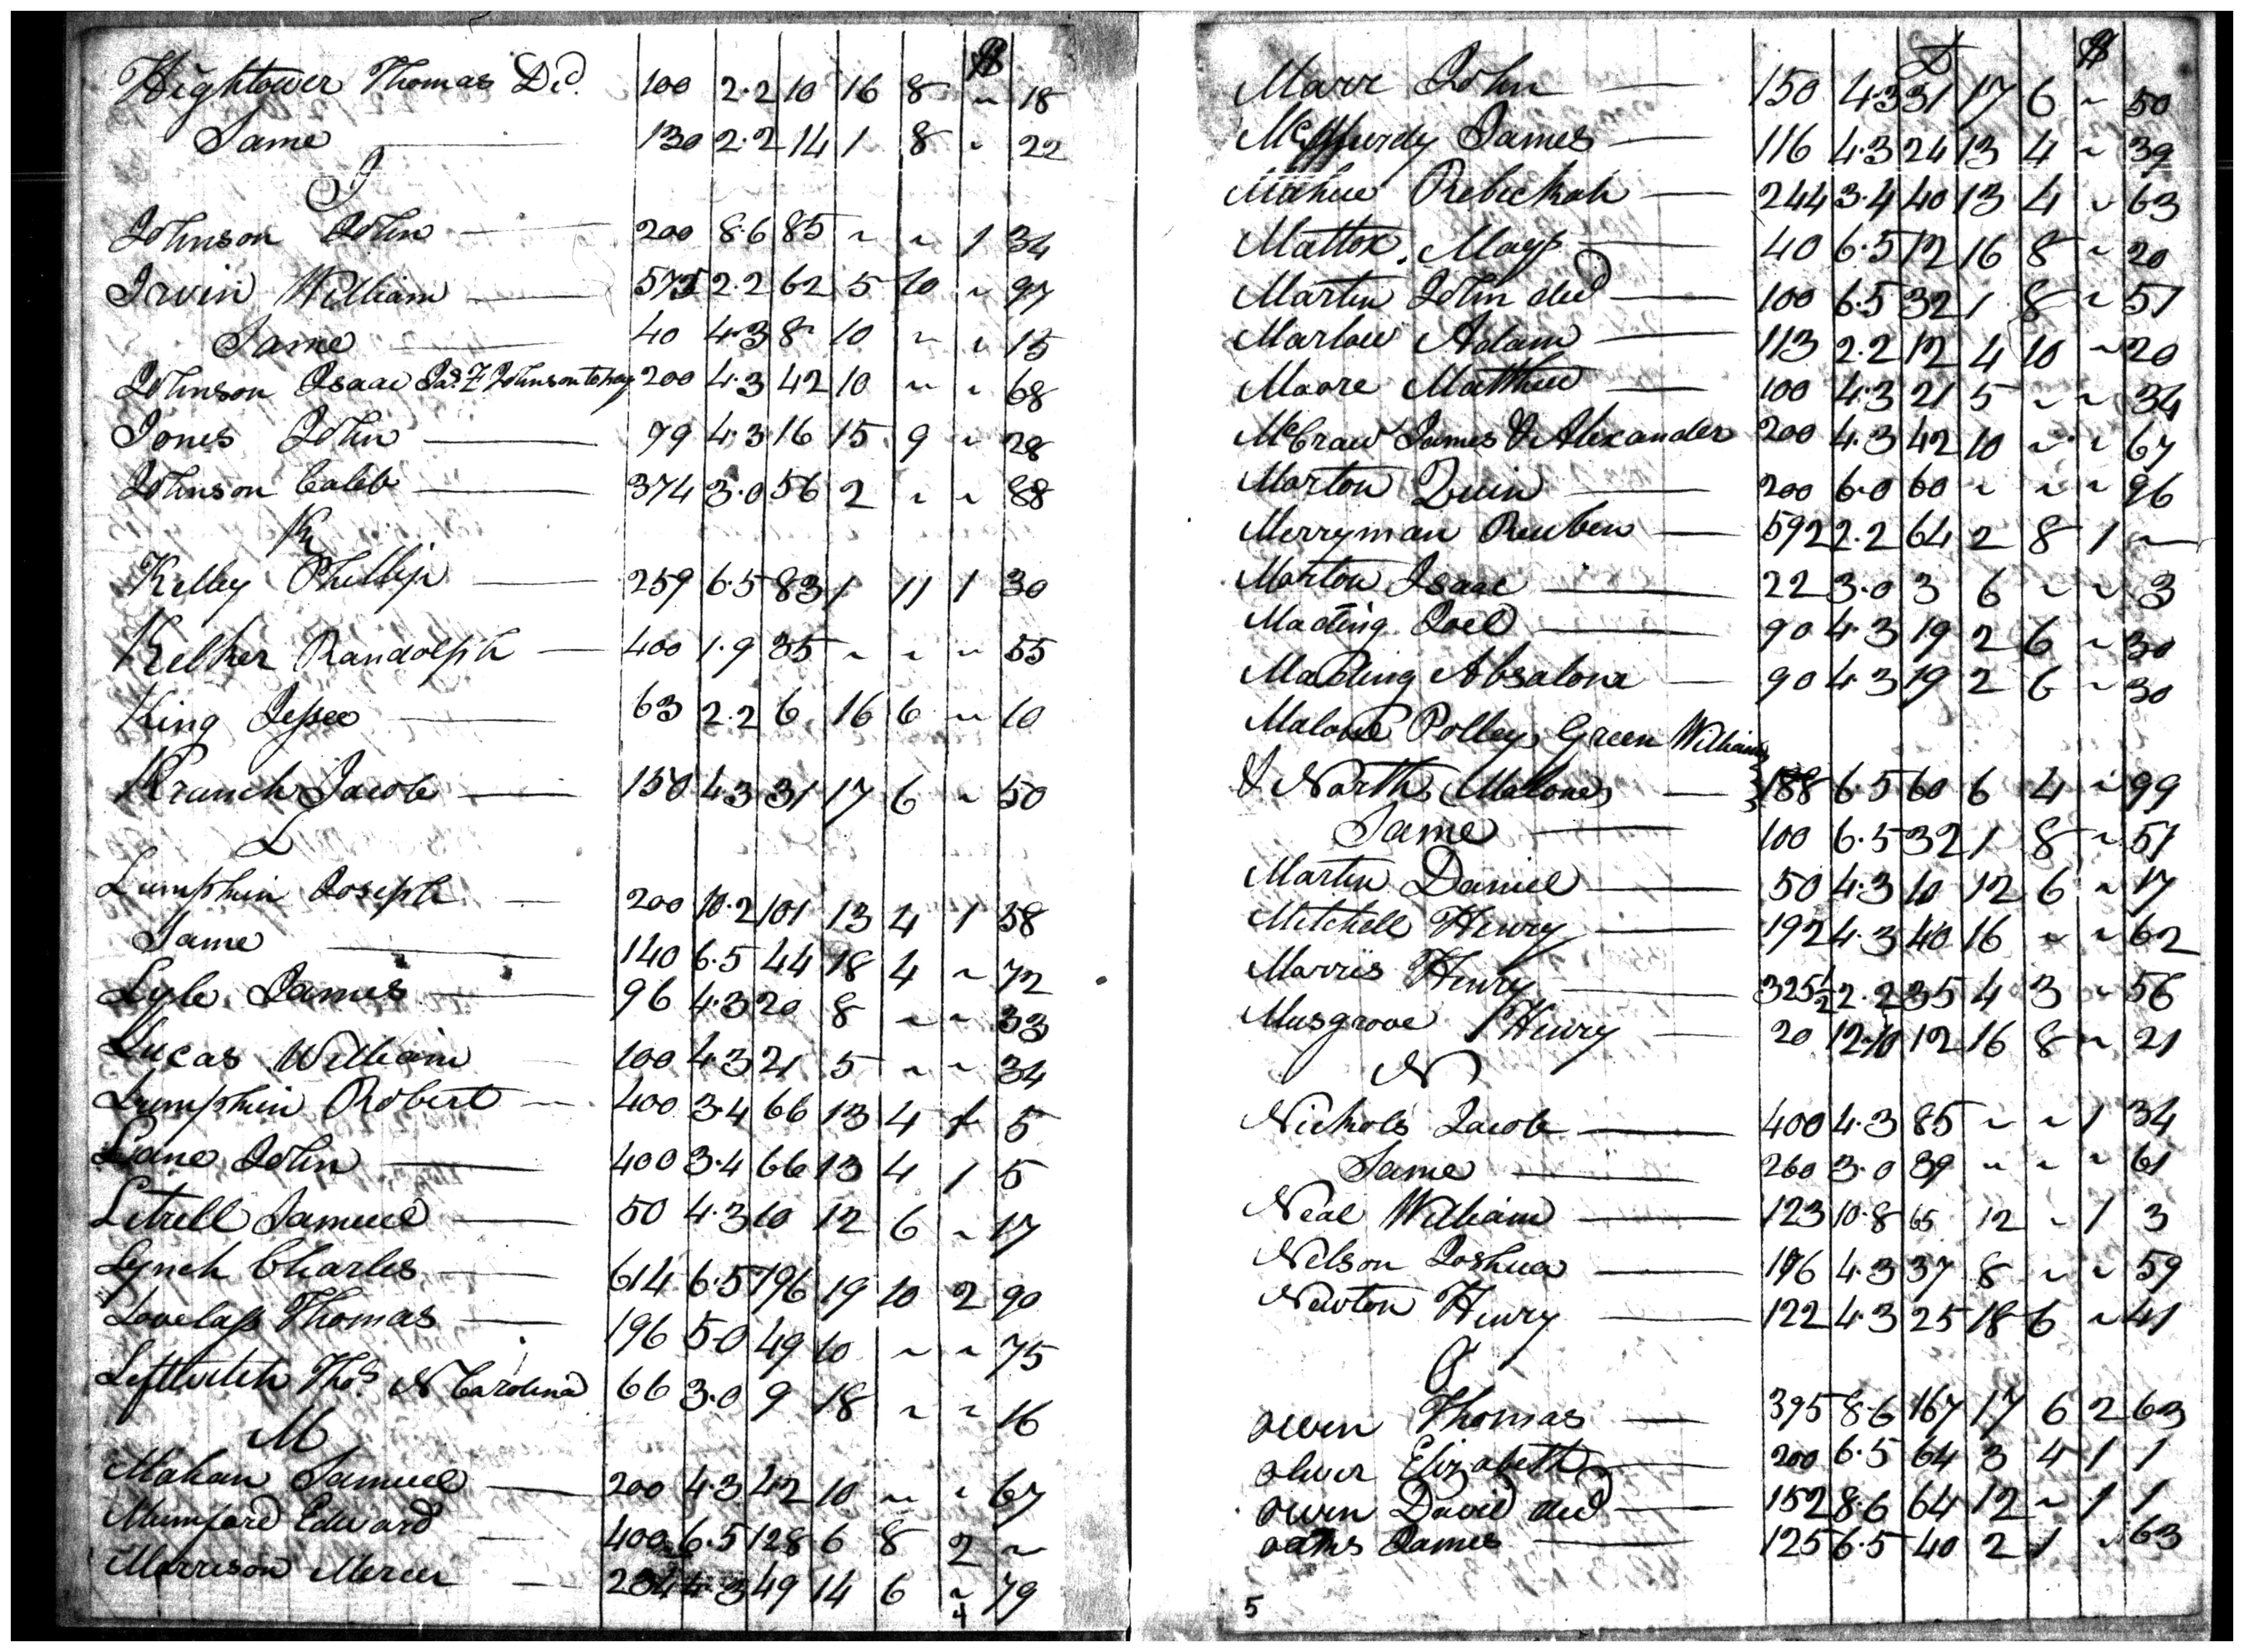 $
Hightower Thomas Decd. 100 2.2 10 16 8 ~ 18
Same 130 2.2 14 1 8 ~ 22
J
Johnson John 200 8.6 85 ~ ~ 1 34
Irvin William 575 2.2 62 5 10 ~ 97
Same 40 4.3 8 10 ~ ~ 15
Johnson Isaac Jas. Z Johnson to pay 200 4.3 42 10 ~ ~ 68
Jones John 79 4.3 16 15 9 ~ 28
Johnson Caleb 374 3.0 56 2 ~ ~ 88
K
Kelley Phillip 259 6.5 83 1 11 1 30
Kelher Randolph 400 1.9 35 ~ ~ ~ 55
King Jesse 63 2.2 6 16 6 ~ 10
Kranch Jacob 150 4.3 31 17 6 ~ 50
L
Lumpkin Joseph 200 10.2 101 13 4 1 58
Same 140 6.5 44 18 4 ~ 72
Lyle James 96 4.3 20 8 ~ ~ 33
Lucas William 100 4.3 21 5 ~ ~ 34
Lumpkin Robert 400 3.4 66 13 4 1 5
Lane John 400 3.4 66 13 4 1 5
Litrell Samuel 50 4.3 10 12 6 ~ 17
Lynch Charles 614 6.5 196 19 10 2 90
Lovelass Thomas 196 5.0 49 10 ~ ~ 75
Leftwitch Thos. N Carolina 66 3.0 9 18 ~ ~ 16
M
Mahan Samuel 200 4.3 42 10 ~ ~ 67
Mumford Edward 400 6.5 128 6 8 2 ~
Morrison Mercer 234 4.3 49 14 6 ~ 79
4
$
Marr John 150 4.3 31 17 6 ~ 50
James 116 4.3 24 13 4 ~ 39
Mahue Rebeckah 244 3.4 40 13 4 ~ 63
Mattox Mays 40 6.5 12 16 8 ~ 20
Martin John decd 100 6.5 32 1 8 ~ 51
Marlow Adam 113 2.2 12 4 10 ~ 20
Moore Matthew 100 4.3 21 5 ~ ~ 34
McCraw James & Alexander 200 4.3 42 10 ~ ~ 67
Morton Quin 200 6.0 60 ~ ~ ~ 96
Merryman Reuben 592 2.2 64 2 8 1 ~
Morton Isaac 22 3.0 3 6 ~ ~ 3
Mading Joel 90 4.3 19 2 6 ~ 30
Mading Absalom 90 4.3 19 2 6 ~ 30
Malone Polley Green William
& North Malone 188 6.5 60 6 4 ~ 99
Same 100 6.5 32 1 8 ~ 51
Martin Daniel 50 4.3 10 12 6 ~ 17
Mitchell Henry 192 4.3 40 16 ~ ~ 62
Morris Henry 325½ 2.2 35 4 3 ~ 56
Musgrove Henry 20 12.10 12 16 8 ~ 21
N
Nichols Jacob 400 4.3 85 ~ ~ 1 34
Same 260 3.0 39 ~ ~ ~ 61
Neal William 123 10.8 65 12 ~ 1 3
Nelson Joshua 176 4.3 37 8 ~ ~ 59
Newton Henry 122 4.3 25 18 6 ~ 41
O
Owen Thomas 395 8.6 167 17 6 2 63
Oliver Elizabeth 200 6.5 64 3 4 1 1
Owen David decd 152 8.6 64 12 ~ 1 1
Oakes James 125 6.5 40 2 1 ~ 63
5